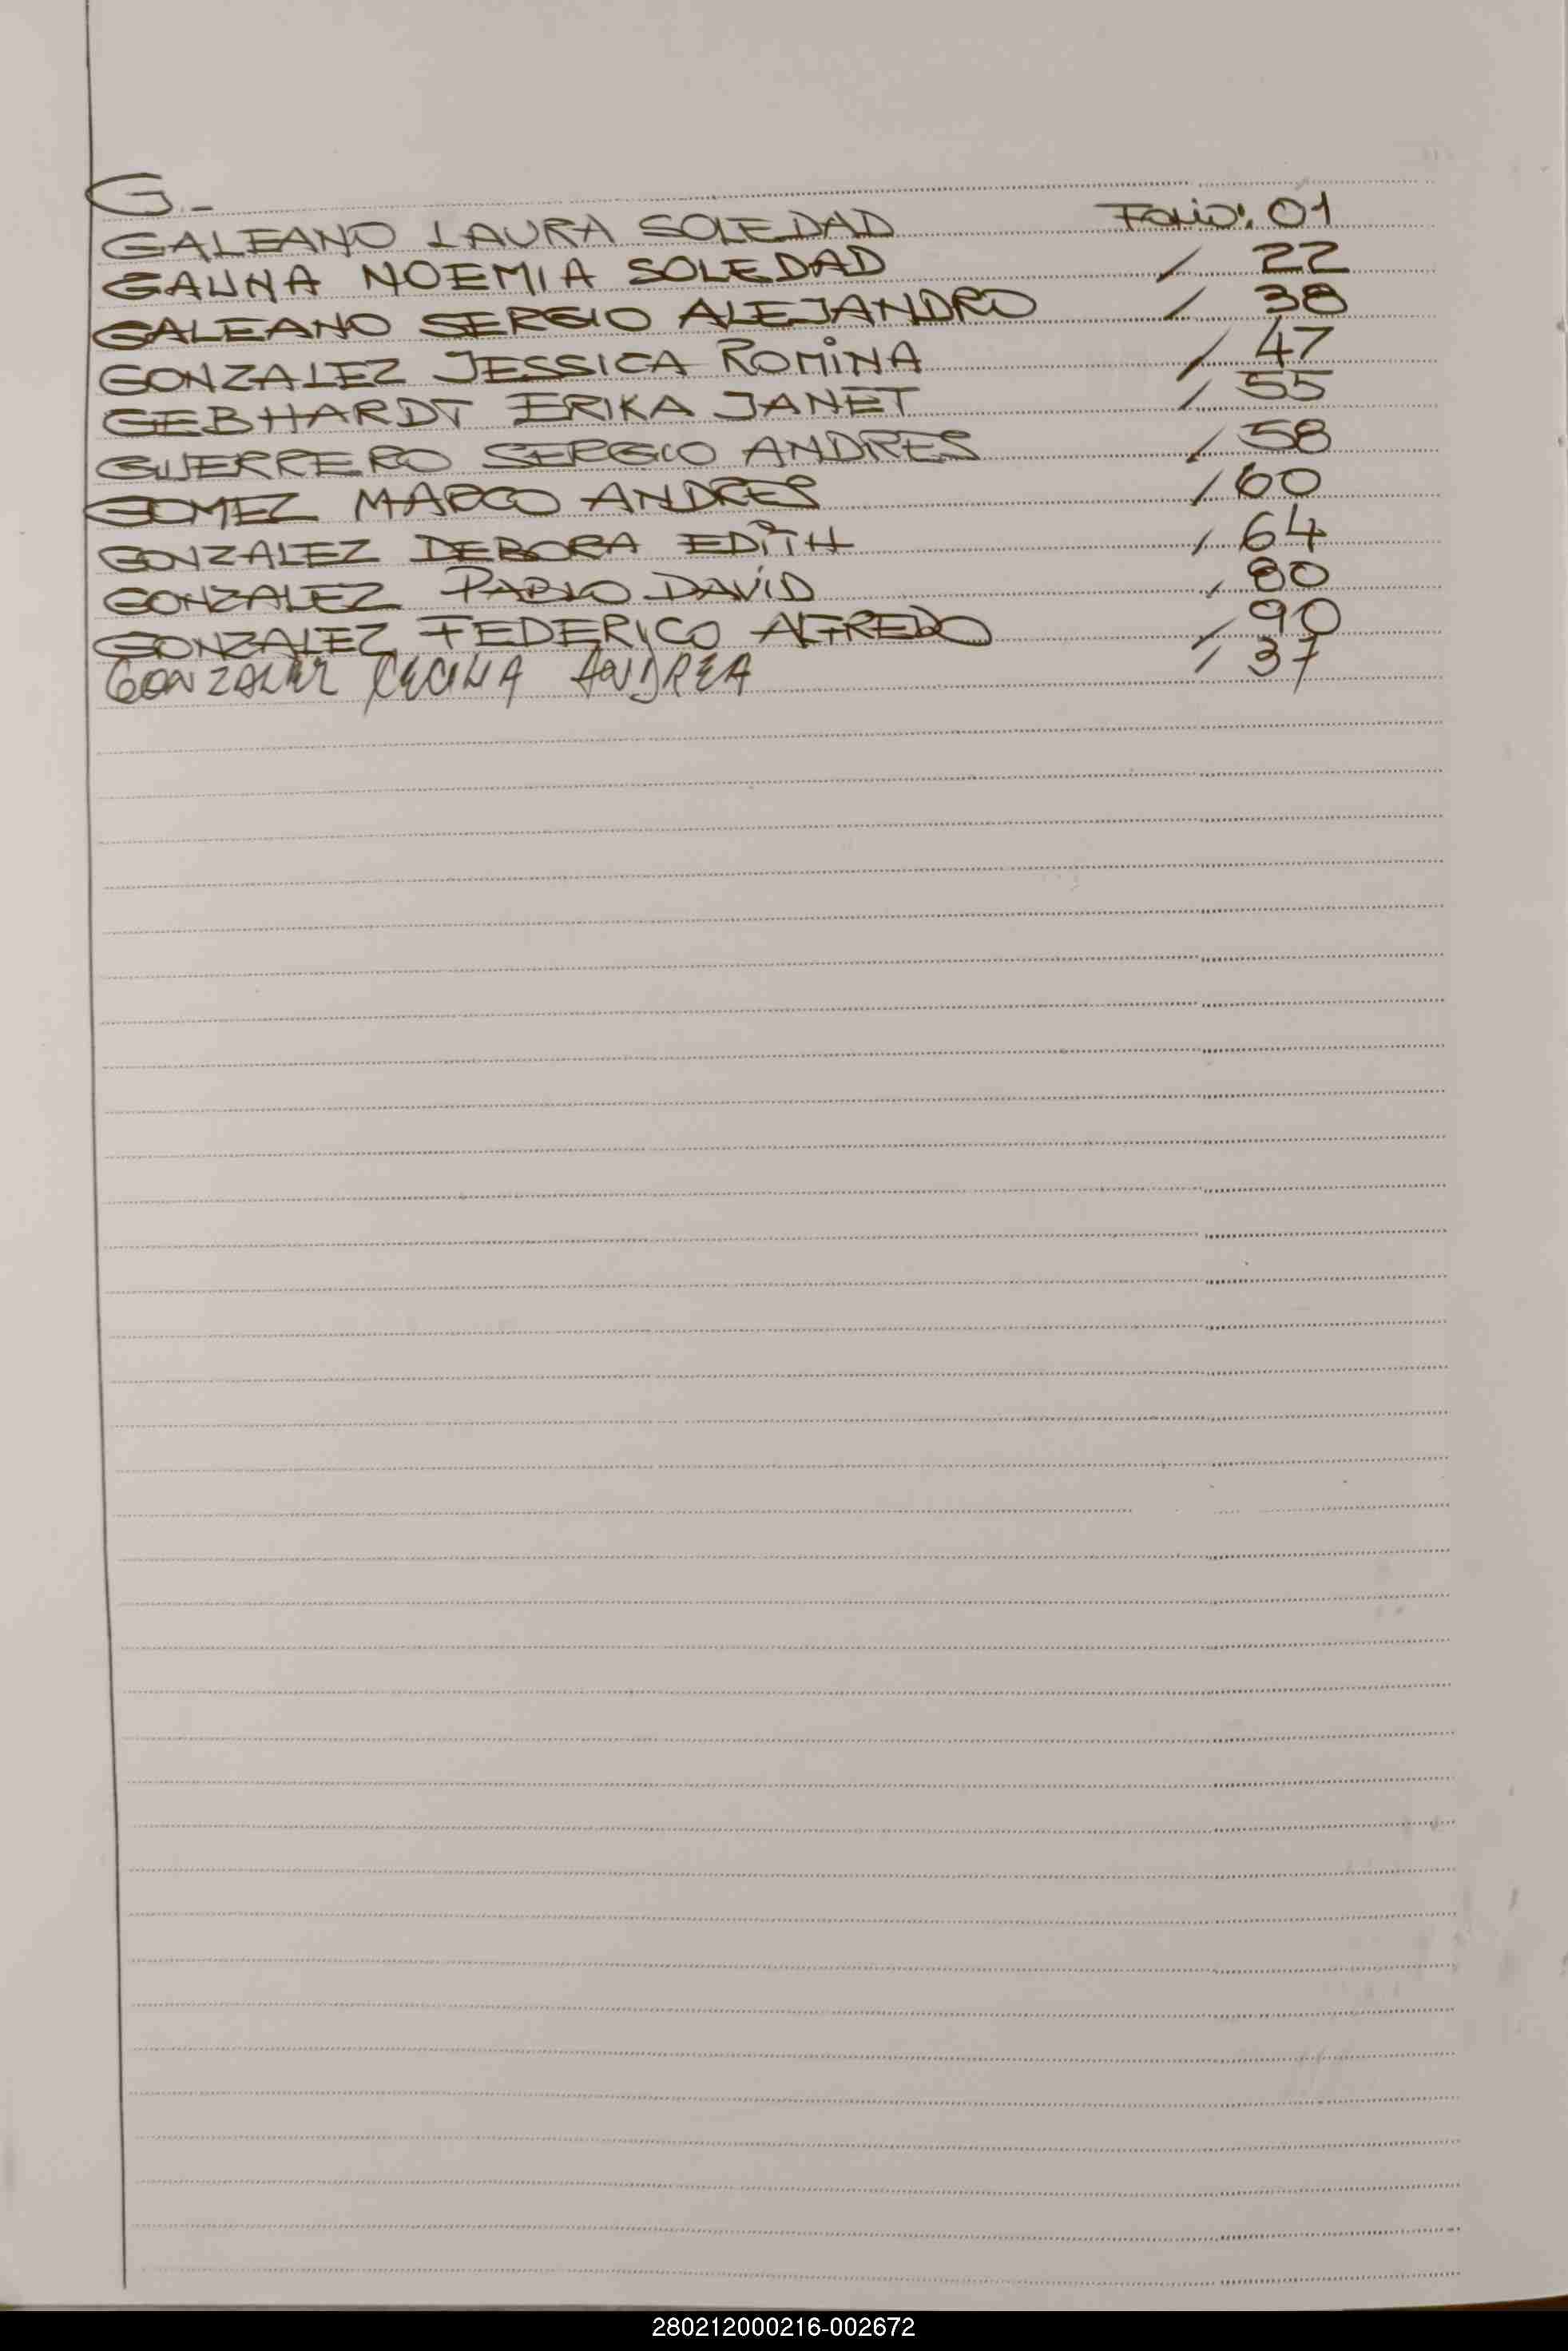 G.-
GALEANO LAURA SOLEDAD Folio: 01
GAUNA NOEMIA SOLEDAD / 22
GALEANO SERGIO ALEJANDRO / 38
GONZALEZ JESSICA ROMINA / 47
GEBHARDT ERIKA JANET / 55
GUERRERO SERGIO ANDRES / 58
GOMEZ MARCO ANDRES / 60
GONZALEZ DEBORA EDITH / 64
GONZALEZ PABLO DAVID / 80
GONZALEZ FEDERICO ALFREDO / 90
GONZALEZ CECILIA ANDREA / 37
280212000216-002672